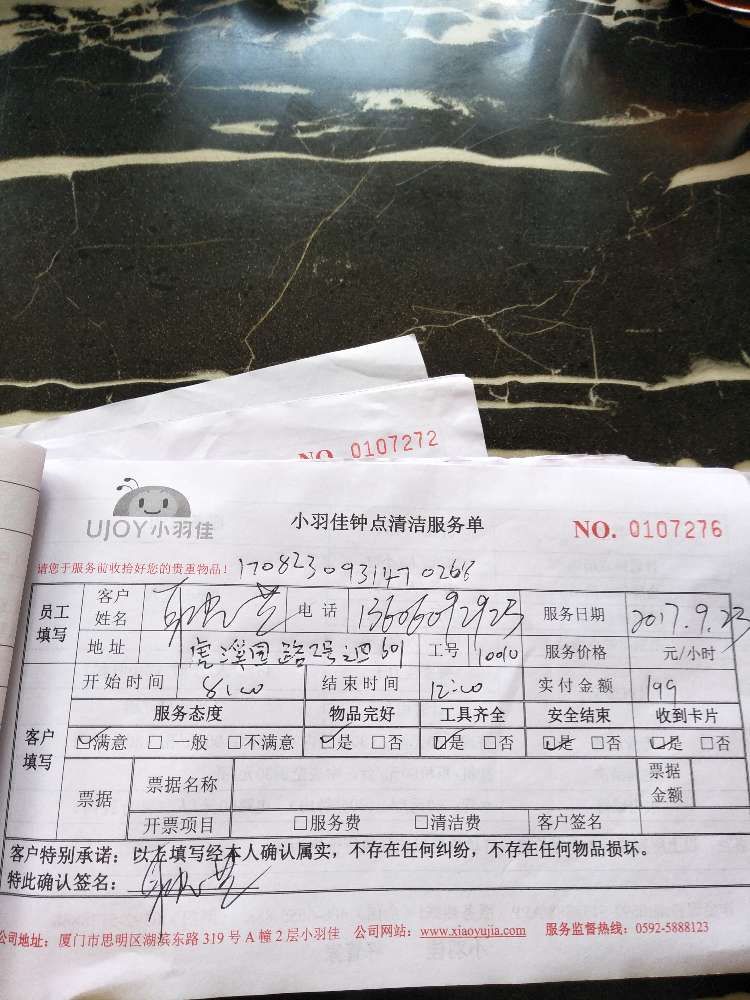 NO. 0107272
UJOY小羽佳
小羽佳钟点清洁服务单
NO. 0107276
请您于服务前收拾好您的贵重物品!
员工填写 客户姓名 电话 13606092923 服务日期 2017.9.23
地址 601 工号 10010 服务价格 元/小时
开始时间 8:00 结束时间 12:00 实付金额 199
客户填写 服务态度 物品完好 工具齐全 安全结束 收到卡片
☑满意 □一般 □不满意 ☑是 □否 ☑是 □否 ☑是 □否 ☑是 □否
票据 票据名称 票据金额
开票项目 □服务费 □清洁费 客户签名
客户特别承诺:以上填写经本人确认属实,不存在任何纠纷,不存在任何物品损坏。
特此确认签名:
公司地址:厦门市思明区湖滨东路 319 号 A 幢 2 层小羽佳 公司网站:www.xiaoyujia.com 服务监督热线:0592-5888123